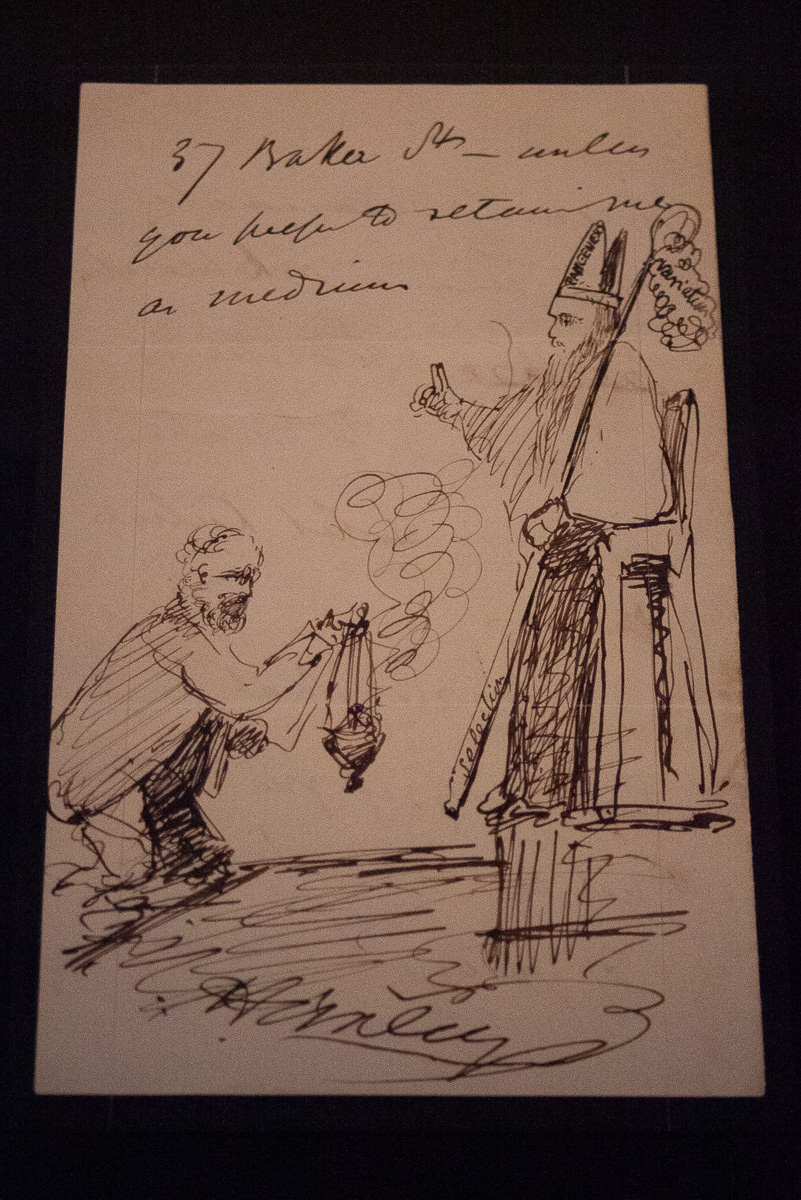 37 Baker St – unless
you prefer to retain me
as medium
PANGENESIS
variation
selection
THHuxley